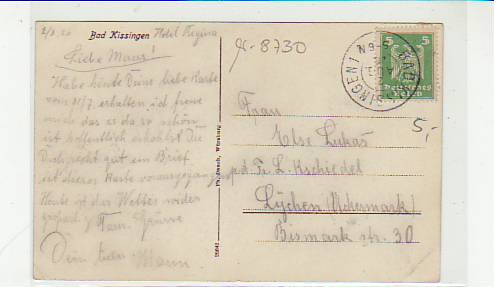 2/8.26 Bad Kissingen Hotel Regina
Liebe Maus!
Habe heute Deine liebe Karte
vom 31/7. erhalten ich freue
mich das es da so schön
ist hoffentlich erholst Du
Dich recht gut ein Brief
ist dieser Karte vorausgegangen
Heute ist das Wetter wieder
Dein lieber Mann
gr-8730
BAD KISSINGEN 1
5 5
Deutsches
Reich
5,-
Frau
Else Lukas
p.d. Fr. L. Kschiedel
Lychen (Uckermark)
Bismarkstr. 30
Würzburg